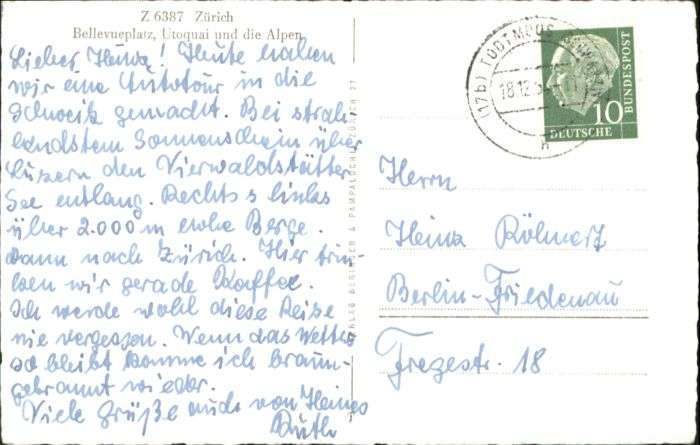 Z 6387 Zürich
Bellevueplatz, Utoquai und die Alpen
Lieber Heinz! Heute haben
wir eine Autotour in die
Schweiz gemacht. Bei strah-
lendstem Sonnenschein über
Luzern den Vierwaldstätter
See entlang. Rechts & links
über 2.000 m hohe Berge.
Dann nach Zürich. Hier trin-
ken wir gerade Kaffee.
Ich werde wohl diese Reise
nie vergessen. Wenn das Wetter
so bleibt komme ich braun-
gebrannt wieder.
Viele Grüße auch von Heines
Ruth
PAMPALUCHI ZÜRICH 27
(17b) TODTMOOS
18.12.5
h
10
DEUTSCHE
BUNDESPOST
Herrn
Heinz
Berlin-Friedenau
Fregestr. 18